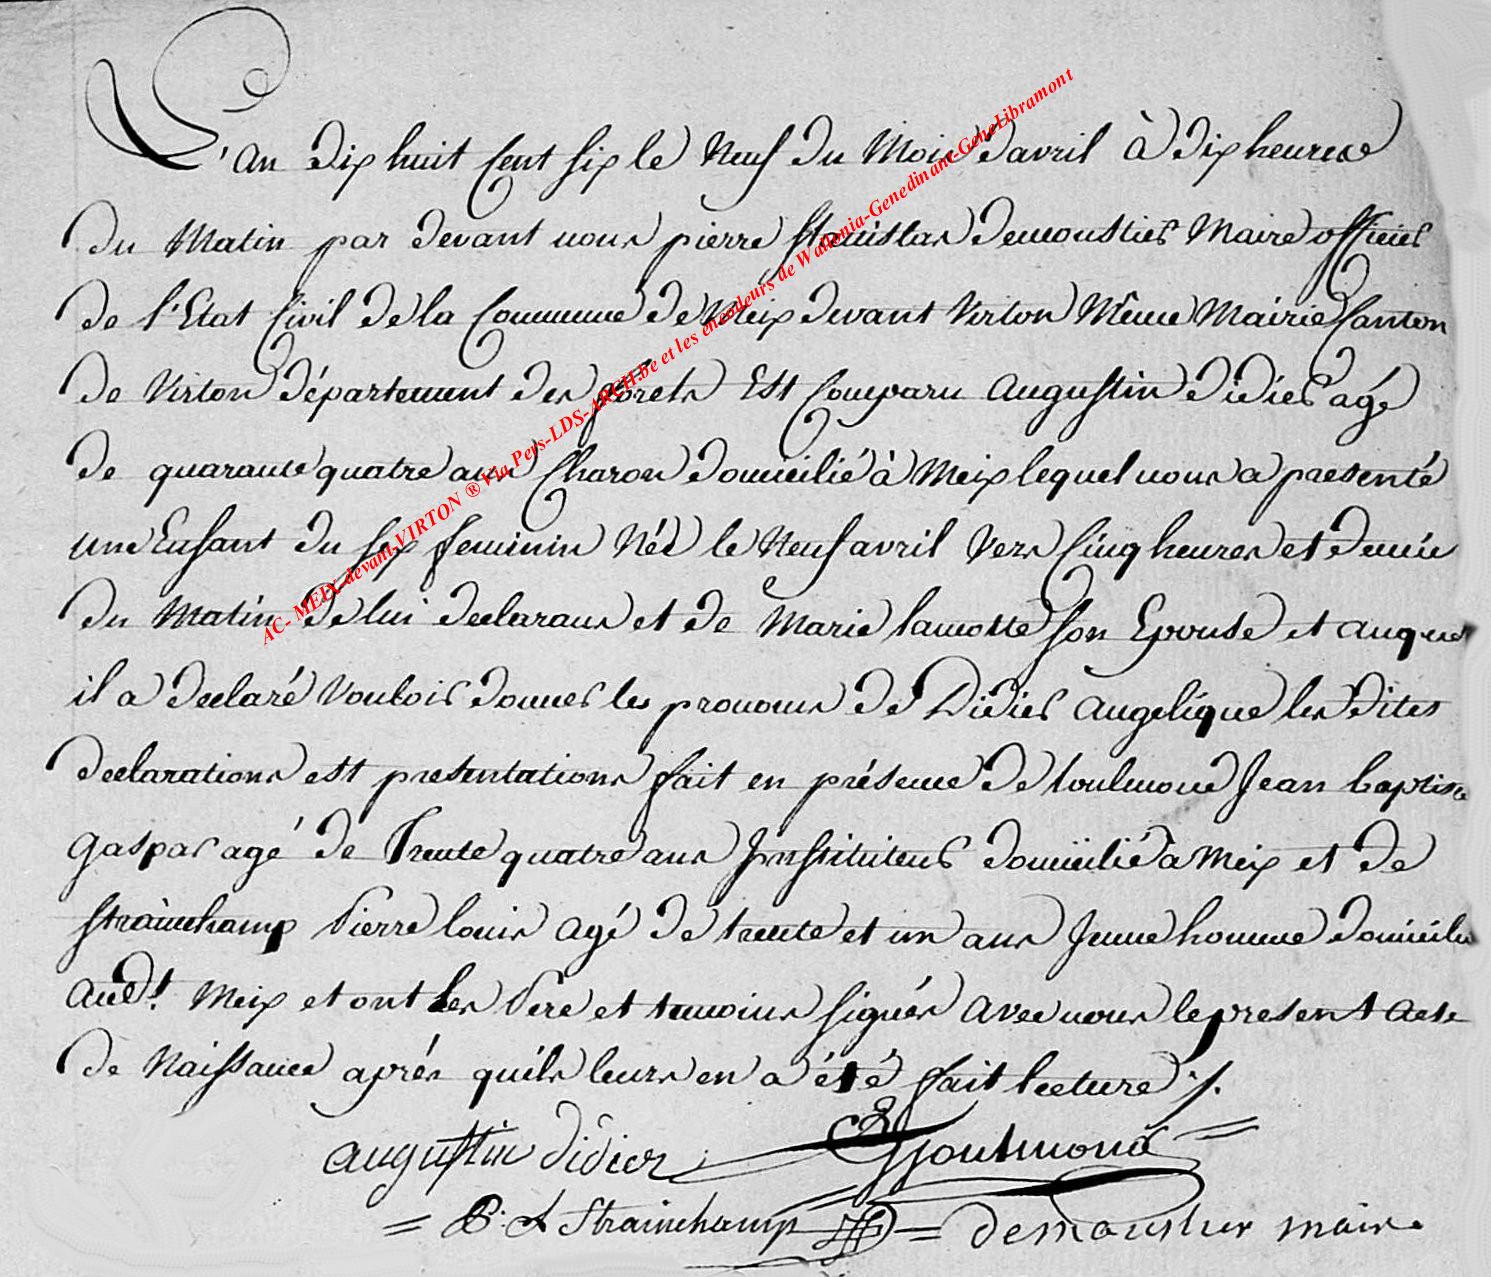 L'an dix huit Cent six le Neuf du Mois d'avril à dix heures
du Matin par devant nous pierre stanislas Demoustier Maire officier
de l'Etat Civil de la Commune de Meix devant Virton Même Mairie Canton
de Virton département des forets Est Comparu augustin didier agé
de quarante quatre ans Charon domicilié à Meix lequel nous a presenté
une Enfant du sex feminin Née le Neuf avril vers Cinq heures et demie
du Matin de lui declarans et de Marie lamotte son Epouse et auquel
il a declaré vouloir donner les pronoms de Didier angelique les dites
declarations est presentations fait en présence de toulmond Jean baptiste
gaspar agé de Trente quatre ans Jnstituteur domicilié à Meix et de
strainchamp Pierre louis agé de trente et un ans Jeune homme domicilié
audt. Meix et ont les Père et temoins signés avec nous le present acte
de Naissance après quils leurs en a été fait lecture ./.
augustin didier Toulmond
P. L Strainchamp demoustier maire
AC- MEIX-devant-VIRTON ® Via Pers-LDS-ARCH.be et les encodeurs de Wallonia-Genedinant-GeneLibramont